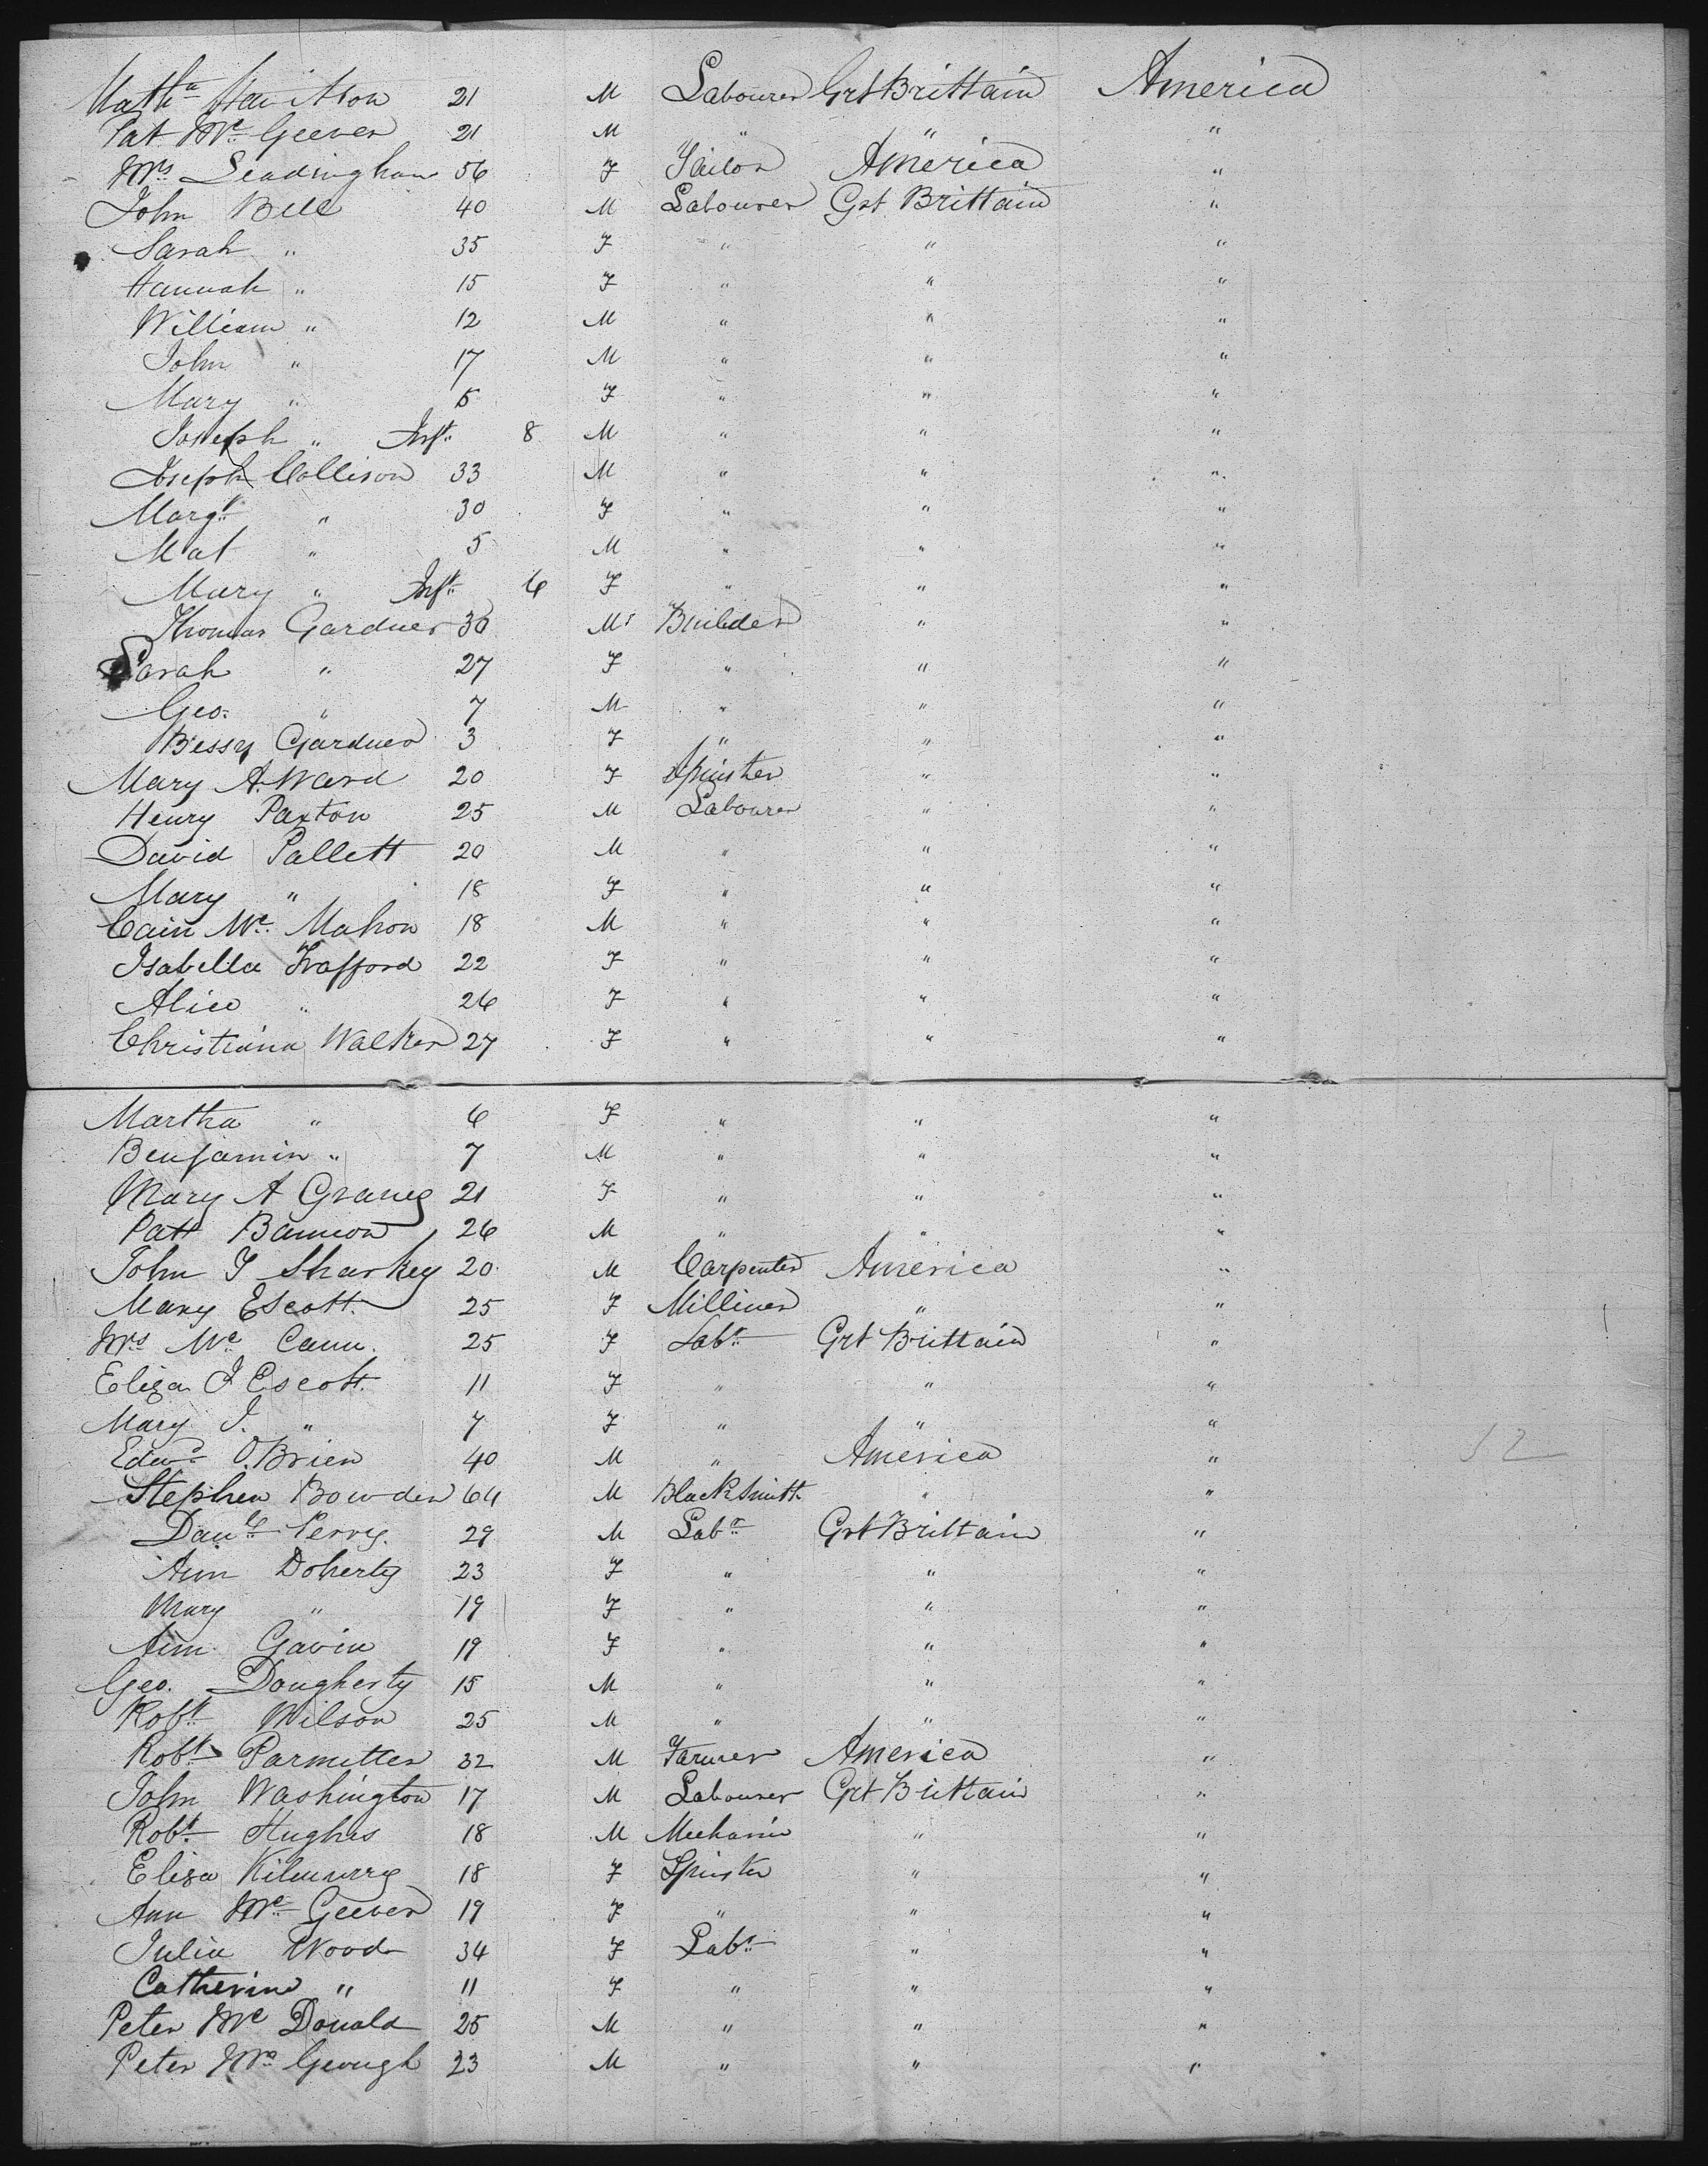 Math.a Hamilton 21 M Labourer Grt Brittain America
Pat Mc Geever 21 M " " "
Mrs Leadingham 56 F Tailor America "
John Bell 40 M Labourer Grt Brittain "
Sarah " 35 F " " "
Hannah " 15 F " " "
William " 12 M " " "
John " 17 M " " "
Mary " 5 F " " "
Joseph " Inft. 8 M " " "
Joseph Collison 33 M " " "
Margt. " 30 F " " "
Mat " 5 M " " "
Mary " Inft. 6 F " " "
Thomas Gardner 30 M Builder " "
Sarah " 27 F " " "
Geo. " 7 M " " "
Bessy Gardner 3 F " " "
Mary A. Ward 20 F Spinster " "
Henry Paxton 25 M Labourer " "
David Pallett 20 M " " "
Mary " 18 F " " "
Cain Mc. Mahon 18 M " " "
Isabella Trafford 22 F " " "
Alice " 26 F " " "
Christiana Walker 27 F " " "
Martha " 6 F " " "
Benjamin " 7 M " " "
Mary A Graney 21 F " " "
Patt Bannon 26 M " " "
John J Sharkey 20 M Carpenter America "
Mary Escott. 25 F Milliner " "
Mrs Mc Cann. 25 F Labr. Grt Brittain "
Eliza J Escott. 11 F " " "
Mary J. " 7 F " " "
Edwd O.Brien 40 M " America "
Stephen Bowden 64 M Blacksmith " "
Danl. Perry. 29 M Labr. Grt Brittain "
Ann Doherty 23 F " " "
Mary " 19 F " " "
Ann Gavin 19 F " " "
Geo. Dougherty 15 M " " "
Robt. Wilson 25 M " " "
Robt. Parmitter 32 M Farmer America "
John Washington 17 M Labourer Grt Brittain "
Robt. Hughes 18 M Mechanic " "
Eliza Kilmurry 18 F Spinster " "
Ann Mc Geever 19 F " " "
Julia Wood 34 F Labr. " "
Catherine " 11 F " " "
Peter Mc Donald 25 M " " "
Peter Mc Geough 23 M " " "